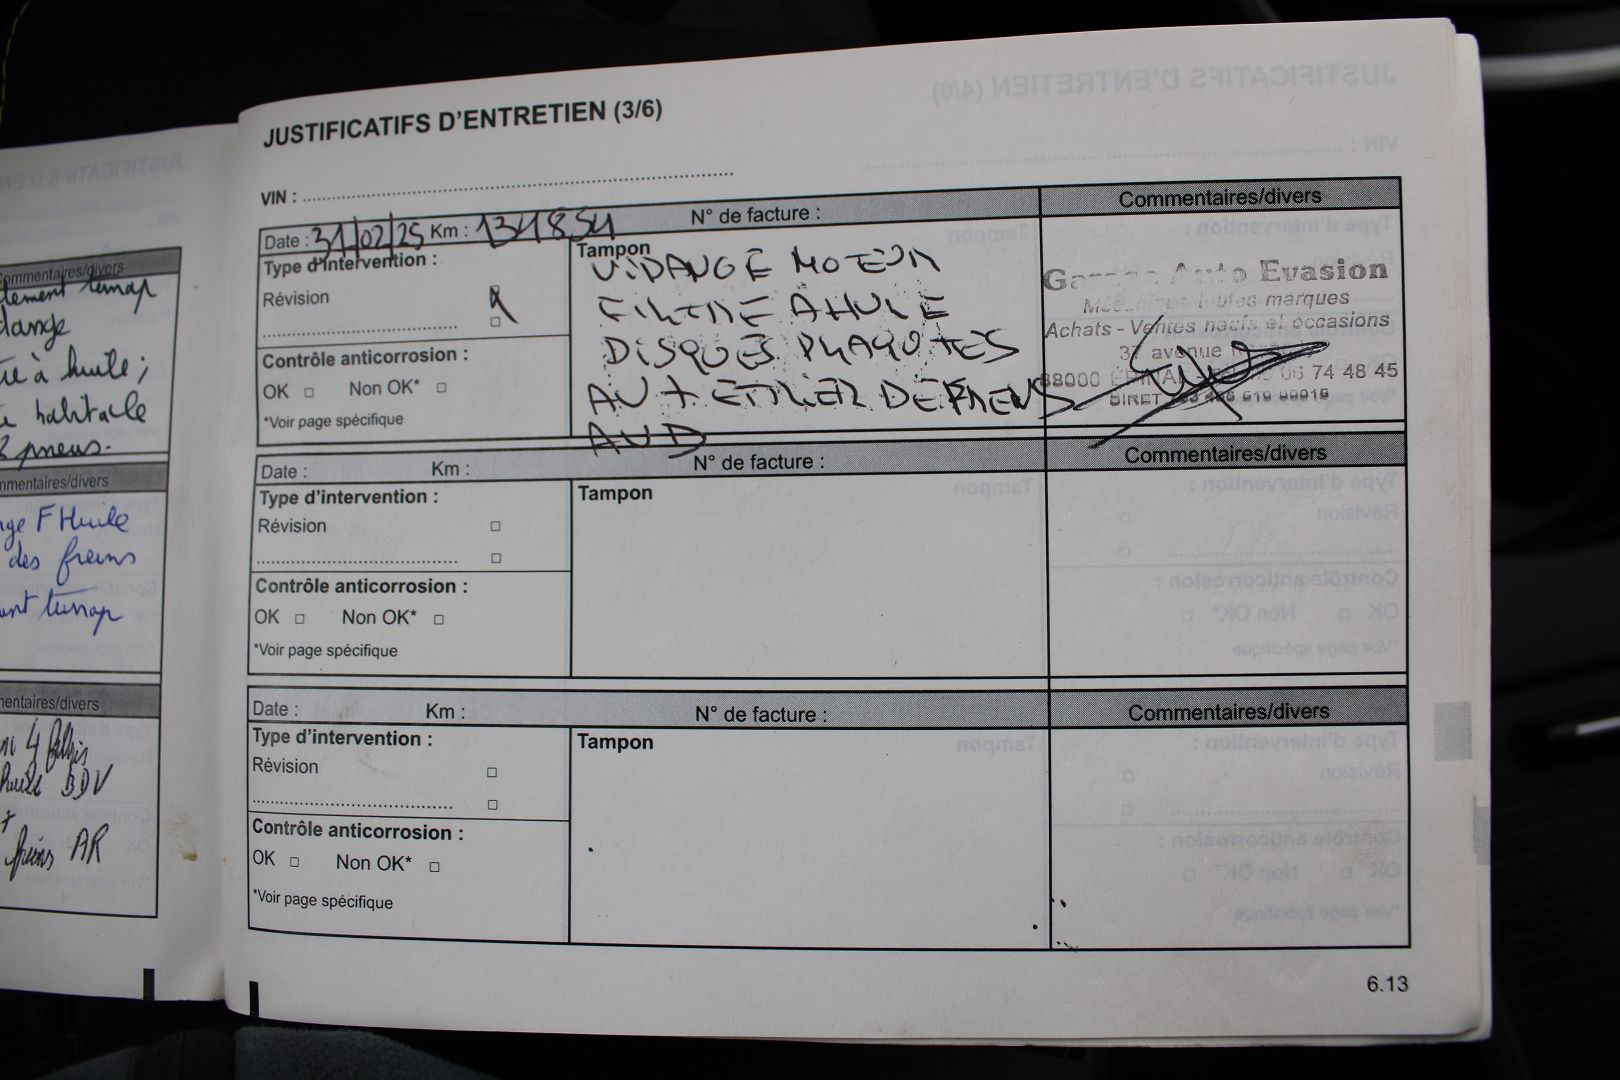 JUSTIFICATIFS D'ENTRETIEN (3/6)
VIN :
Date : 31/02/25 Km : 131854 N° de facture : Commentaires/divers
Type d'intervention :
Révision
Contrôle anticorrosion :
OK Non OK*
*Voir page spécifique
Tampon
VIDANGE MOTEUR
FILTRE A HUILE
DISQUES PLAQUTES
AV + ETRIER DE FREINS
AVD
Auto Evasion
marques
Achats - Ventes neufs et occasions
37 avenue
88000 EPINAL 06 74 48 45
SIRET
Date : Km : N° de facture : Commentaires/divers
Type d'intervention :
Révision
Contrôle anticorrosion :
OK Non OK*
*Voir page spécifique
Tampon
Date : Km : N° de facture : Commentaires/divers
Type d'intervention :
Révision
Contrôle anticorrosion :
OK Non OK*
*Voir page spécifique
Tampon
6.13
Commentaires/divers
à huile ;
habitacle
pneus.
mmentaires/divers
F Huile
des freins
mentaires/divers
BDV
freins AR